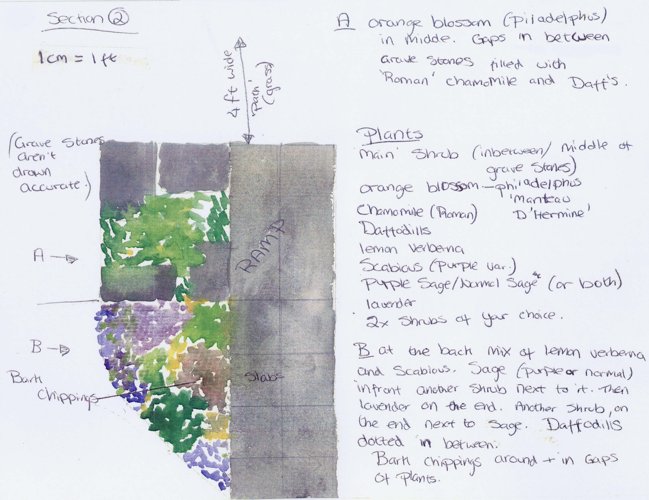 Section 2
1cm = 1ft
4ft wide
'Path' (grass)
(Grave Stones
aren't
drawn
accurate.)
A
RAMP
B
Bark
Chippings
Slabs
A orange blossom (piladelphus)
in midde. Gaps in between
Grave Stones filled with
'Roman' chamomile and Daff's.
Plants
main Shrub (inbetween/middle of
grave stones)
orange blossom - philadelphus
'Manteau
D'Hermine'
Chamomile (Roman)
Daffodills
lemon verbena
Scabious (Purple var.)
Purple Sage/Normal Sage (or both)
lavender
2x Shrubs of your choice.
B at the back mix of lemon verbena
and Scabious. Sage (purple or normal)
infront another Shrub next to it. Then
lavender on the end. Another Shrub, on
the end next to Sage. Daffodills
dotted in between.
Bark chippings around + in Gaps
of Plants.